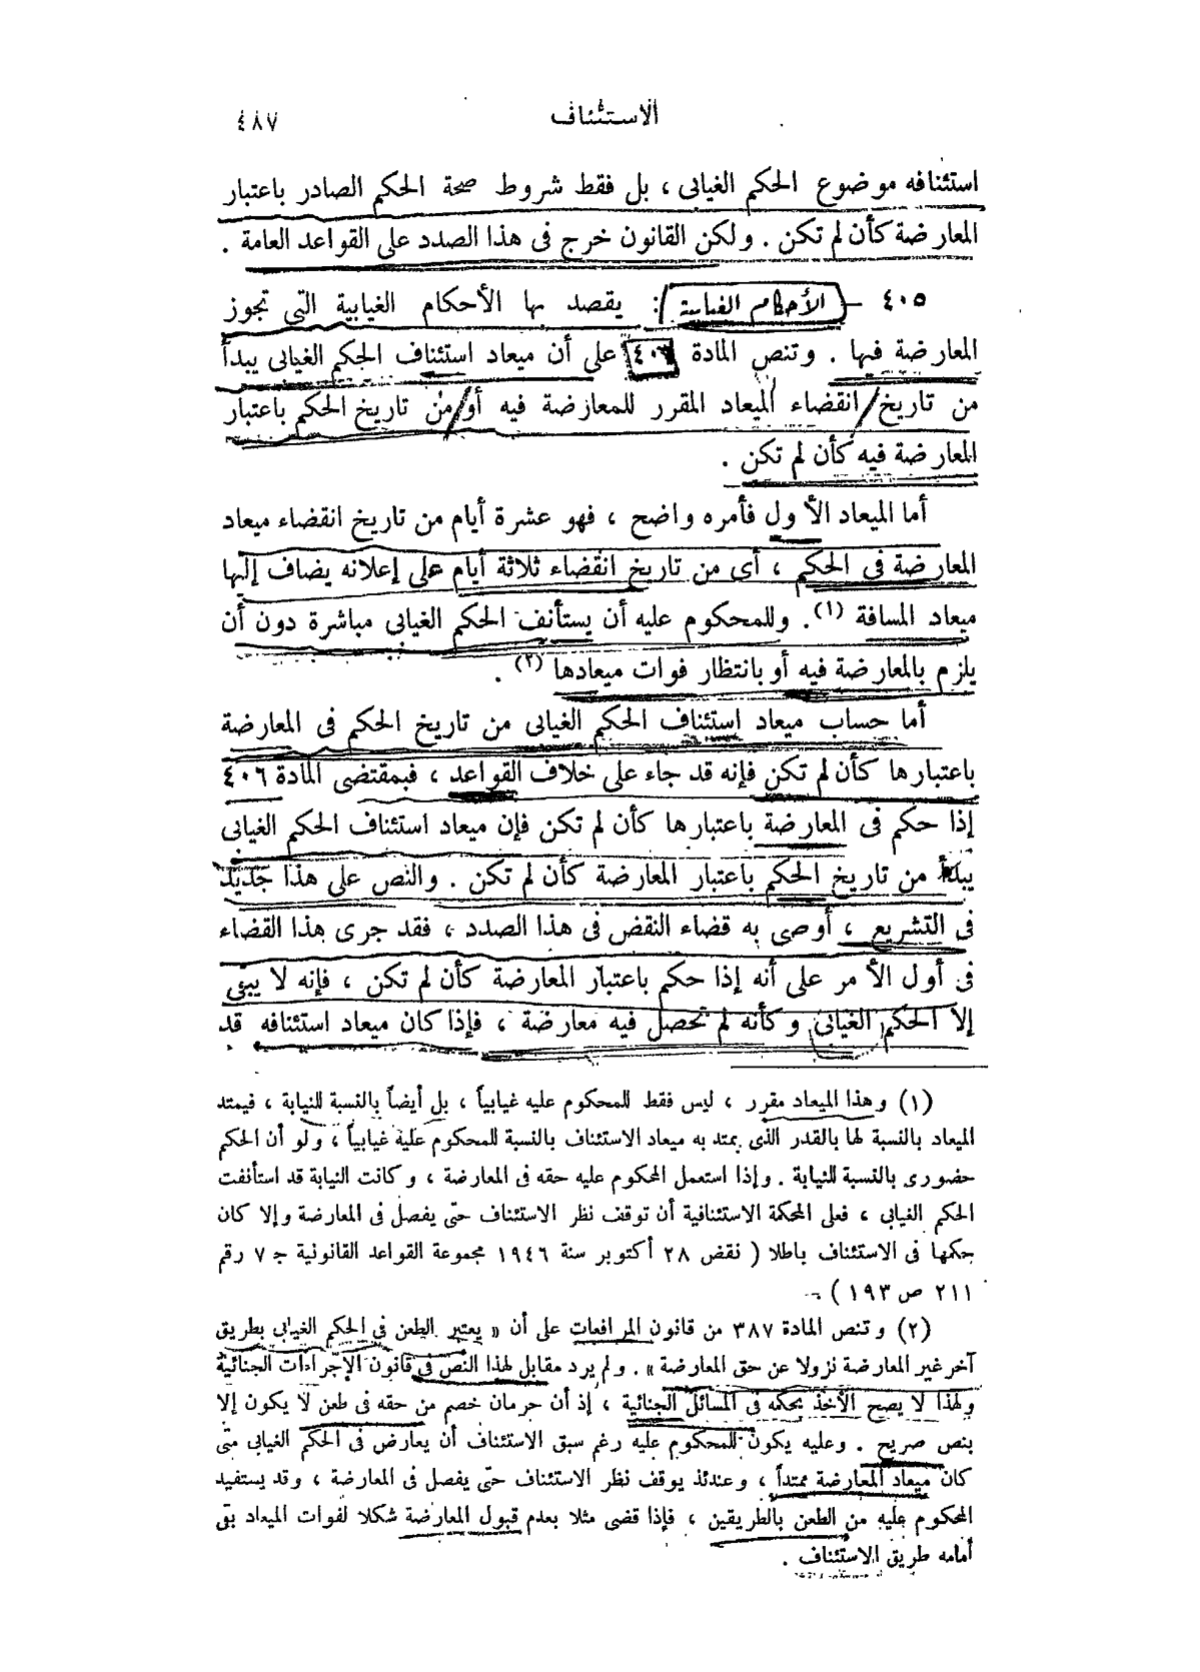 الاستئناف
٤٨٧
استئنافه موضوع الحكم الغيابى ، بل فقط شروط صحة الحكم الصادر باعتبار
المعارضة كأن لم تكن . ولكن القانون خرج فى هذا الصدد على القواعد العامة .
٤٠٥ – الأحكام الغيابية : يقصد بها الأحكام الغيابية التى تجوز
المعارضة فيها . وتنص المادة ٤٠٦ على أن ميعاد استئناف الحكم الغيابى يبدأ
من تاريخ انقضاء الميعاد المقرر للمعارضة فيه أو من تاريخ الحكم باعتبار
المعارضة فيه كأن لم تكن .
أما الميعاد الأول فأمره واضح ، فهو عشرة أيام من تاريخ انقضاء ميعاد
المعارضة فى الحكم ، أى من تاريخ انقضاء ثلاثة أيام على إعلانه يضاف إليها
ميعاد المسافة (١) . وللمحكوم عليه أن يستأنف الحكم الغيابى مباشرة دون أن
يلزم بالمعارضة فيه أو بانتظار فوات ميعادها (٢) .
أما حساب ميعاد استئناف الحكم الغيابى من تاريخ الحكم فى المعارضة
باعتبارها كأن لم تكن فإنه قد جاء على خلاف القواعد ، فبمقتضى المادة ٤٠٦
إذا حكم فى المعارضة باعتبارها كأن لم تكن فإن ميعاد استئناف الحكم الغيابى
يبدأ من تاريخ الحكم باعتبار المعارضة كأن لم تكن . والنص على هذا جديد
فى التشريع ، أوصى به قضاء النقض فى هذا الصدد ، فقد جرى هذا القضاء
فى أول الأمر على أنه إذا حكم باعتبار المعارضة كأن لم تكن ، فإنه لا يبقى
إلا الحكم الغيابى وكأنه لم تحصل فيه معارضة ، فإذا كان ميعاد استئنافه قد
(١) وهذا الميعاد مقرر ، ليس فقط للمحكوم عليه غيابياً ، بل أيضاً بالنسبة للنيابة ، فيمتد
الميعاد بالنسبة لها بالقدر الذى يمتد به ميعاد الاستئناف بالنسبة للمحكوم عليه غيابياً ، ولو أن الحكم
حضورى بالنسبة للنيابة . وإذا استعمل المحكوم عليه حقه فى المعارضة ، وكانت النيابة قد استأنفت
الحكم الغيابى ، فعلى المحكمة الاستئنافية أن توقف نظر الاستئناف حتى يفصل فى المعارضة وإلا كان
حكمها فى الاستئناف باطلا ( نقض ٢٨ أكتوبر سنة ١٩٤٦ مجموعة القواعد القانونية ج ٧ رقم
٢١١ ص ١٩٣ )
(٢) وتنص المادة ٣٨٧ من قانون المرافعات على أن « يعتبر الطعن فى الحكم الغيابى بطريق
آخر غير المعارضة نزولا عن حق المعارضة » . ولم يرد مقابل لهذا النص فى قانون الإجراءات الجنائية
ولهذا لا يصح الأخذ بحكمه فى المسائل الجنائية ، إذ أن حرمان خصم من حقه فى طعن لا يكون إلا
بنص صريح . وعليه يكون للمحكوم عليه رغم سبق الاستئناف أن يعارض فى الحكم الغيابى متى
كان ميعاد المعارضة ممتداً ، وعندئذ يوقف نظر الاستئناف حتى يفصل فى المعارضة ، وقد يستفيد
المحكوم عليه من الطعن بالطريقين ، فإذا قضى مثلا بعدم قبول المعارضة شكلا لفوات الميعاد بقى
أمامه طريق الاستئناف .